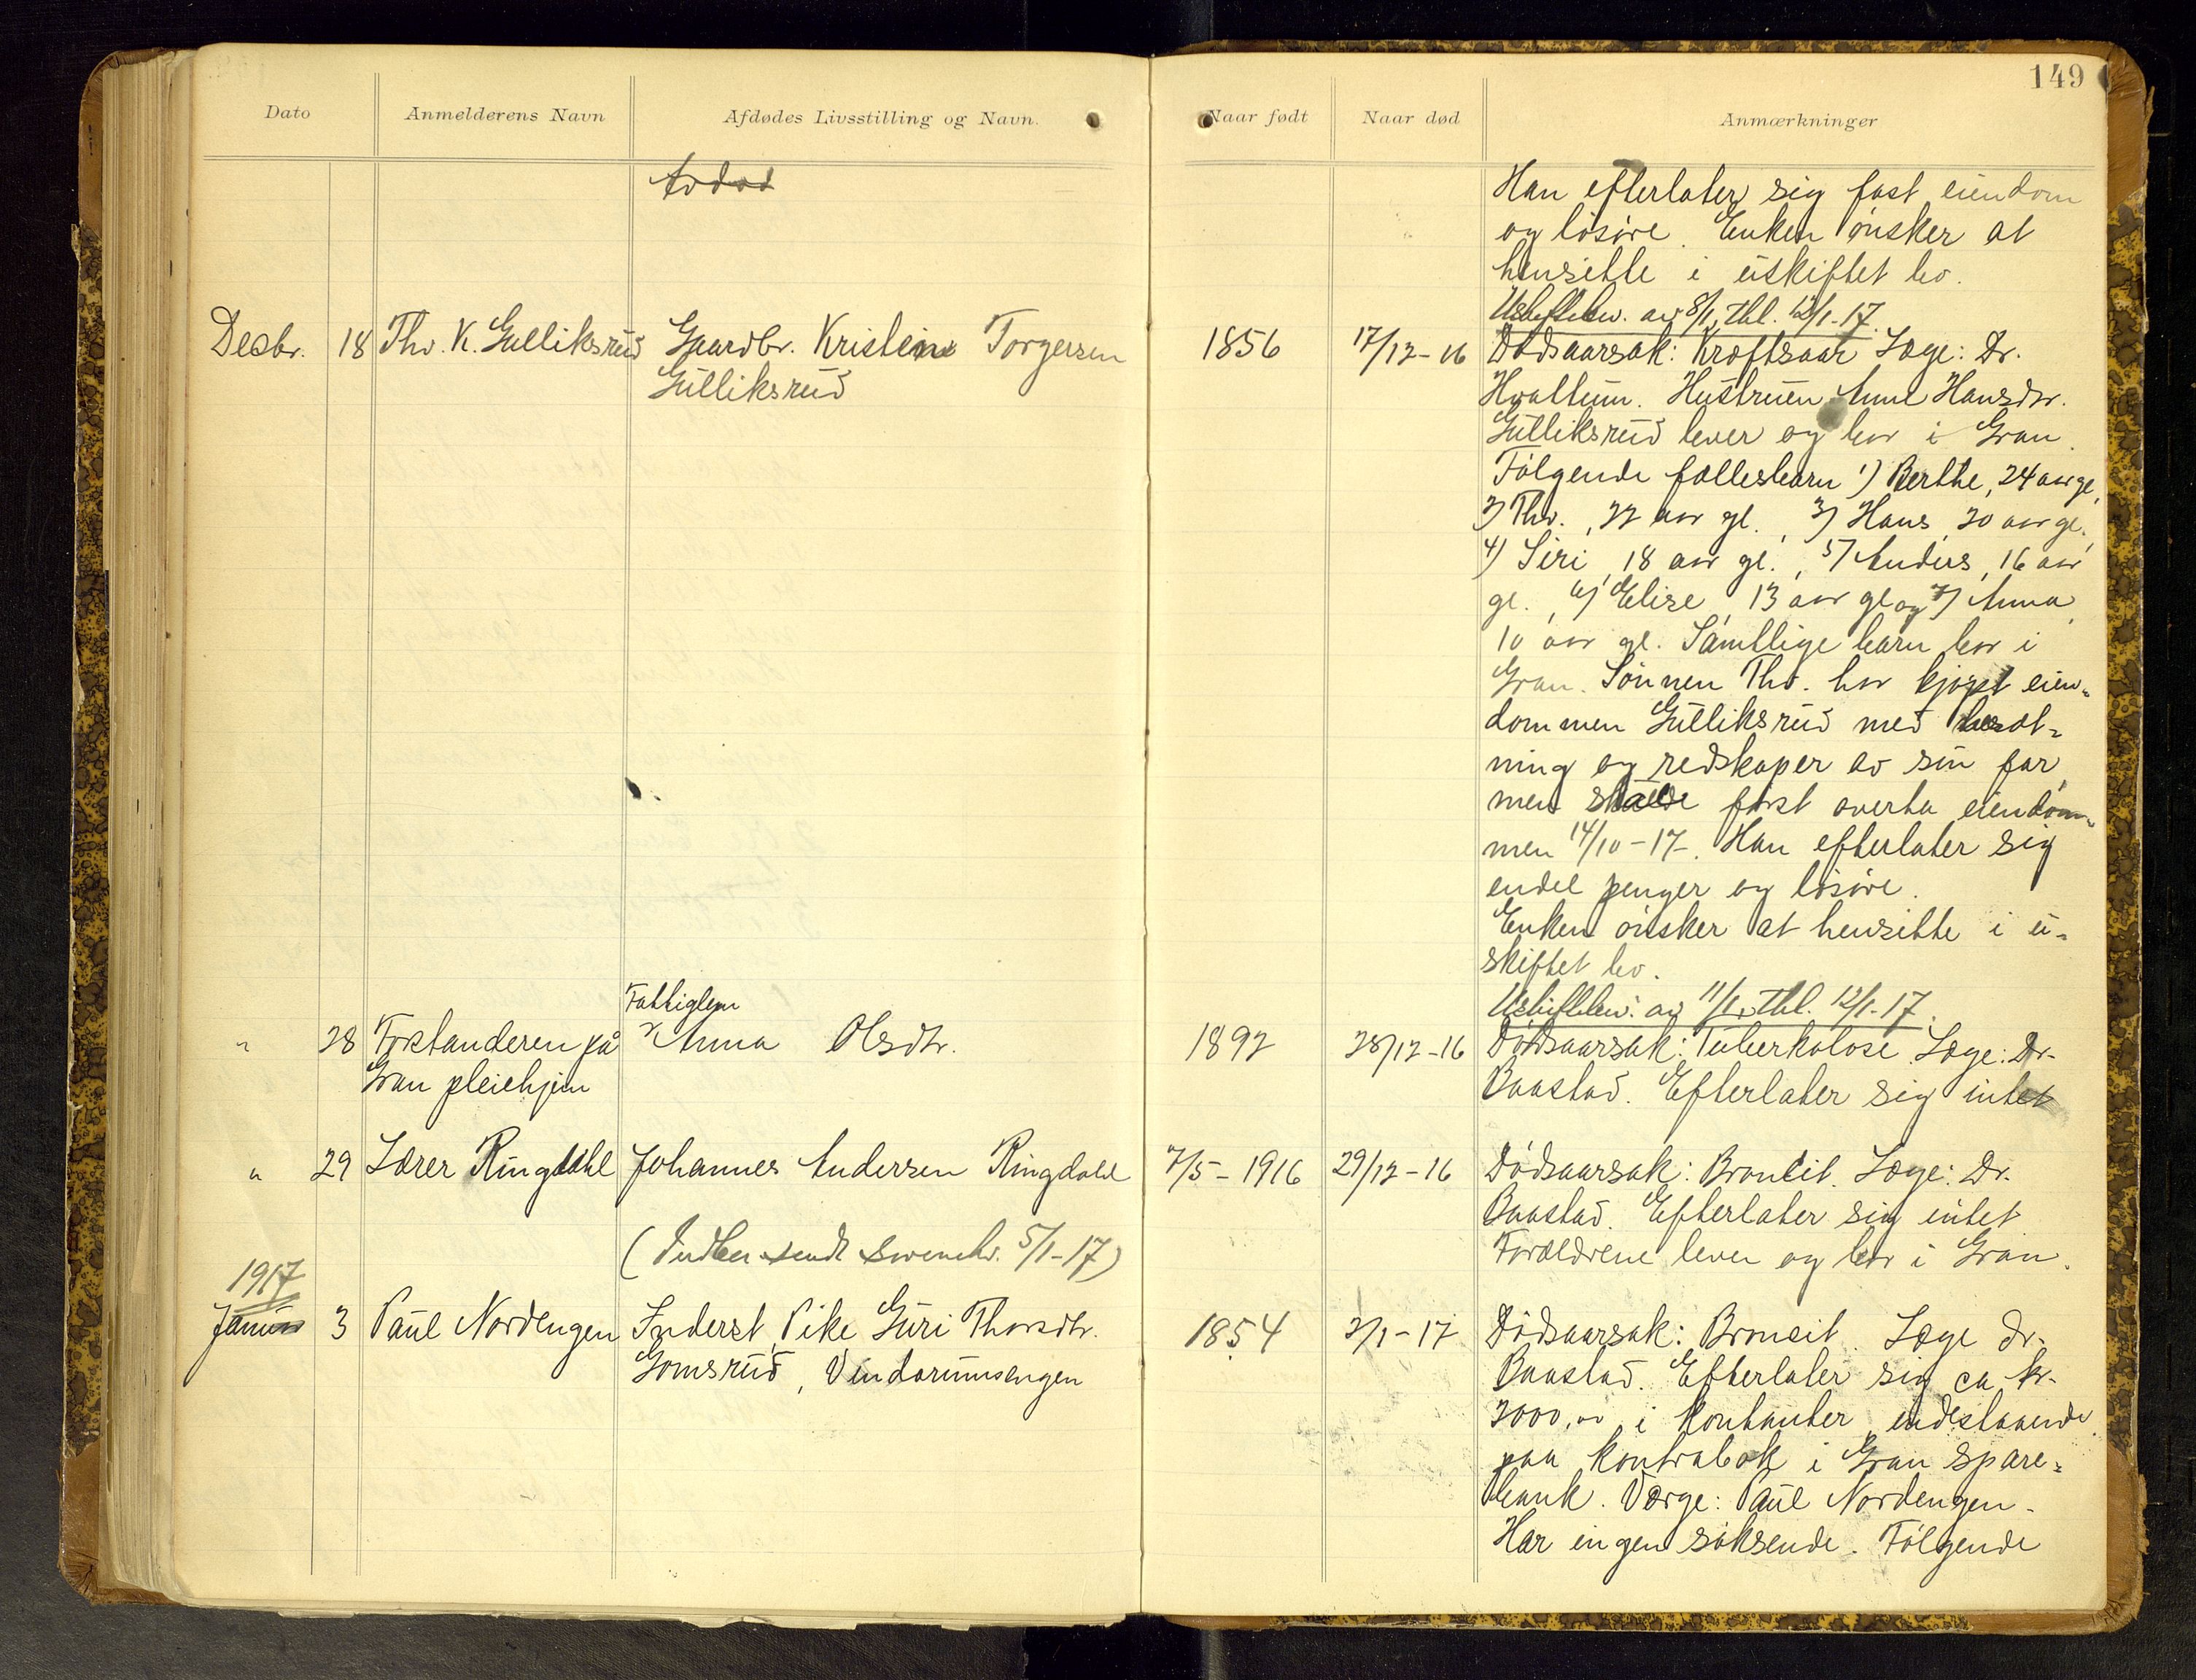 149
Dato Anmelderens Navn Afdødes Livsstilling og Navn. Naar født Naar død Anmærkninger
Avdød
Han efterlater sig fast eiendom
og løsøre. Enken ønsker at
hensitte i uskiftet bo.
Uskiftebev. av 8/1, thl. 12/1-17.
Desbr. 18 Thv. K. Gulliksrud Gaardbr. Kristen Torgersen 1856 17/12-16 Dødsaarsak: Kræftsaar Læge: Dr.
Gulliksrud
Hvattum. Hustruen Anne Hansdtr.
Gulliksrud lever og bor i Gran.
Følgende fællesbarn 1) Berthe, 24 aar gl.,
2) Thv., 22 aar gl., 3) Hans, 20 aar gl.,
4) Siri, 18 aar gl., 5) Anders, 16 aar
gl., 6) Elise, 13 aar gl og 7) Anna,
10 aar gl. Samtlige barn bor i
Gran. Sønnen Thv. har kjøpt eien-
dommen Gulliksrud med besæt-
ning og redskaper av sin far,
men skulde først overta eiendom-
men 14/10-17. Han efterlater sig
endel penger og løsøre.
Enken ønsker at hensitte i u-
skiftet bo.
Uskiftebev. av 11/1, thl. 12/1-17.
Fattiglem
" 28 Forstanderen på Anna Olsdtr. 1892 28/12-16 Dødsaarsak: Tuberkolose Læge: Dr.
Gran pleiehjem
Baastad. Efterlater sig intet
" 29 Lærer Ringdahl Johannes Andersen Ringdahl 7/5-1916 29/12-16 Dødsaarsak: Bronkit. Læge: Dr.
Baastad. Efterlater sig intet
(Indber. sendt Sorenskr. 5/1-17)
Forældrene lever og bor i Gran.
1917
Januar 3 Paul Nordengen Inderst, Pike Guri Thorsdtr. 1854 2/1-17 Dødsaarsak: Bronkit. Læge Dr.
Gomsrud, Vindorumsengen
Baastad. Efterlater sig ca kr.
2000,00 i kontanter indestaaende
paa kontrabok i Gran spare-
bank. Værge: Paul Nordengen.
Har ingen søksende. Følgende